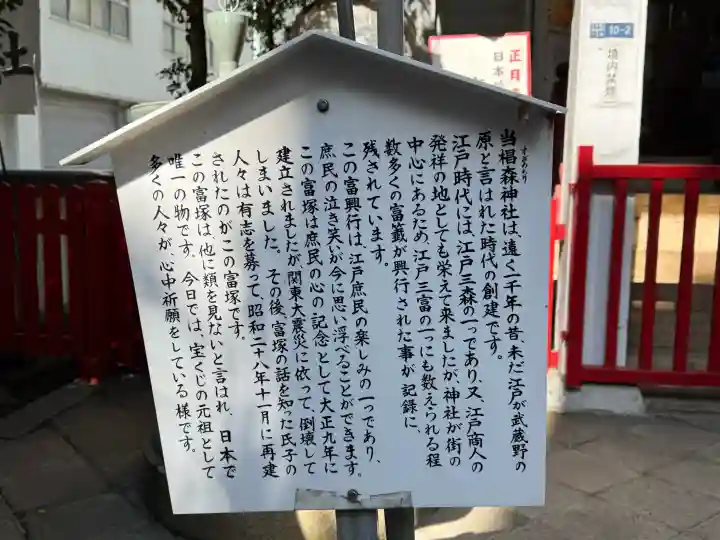 当椙森神社は、遠く一千年の昔、未だ江戸が武蔵野の
すぎのもり
原と言はれた時代の創建です。
江戸時代には、江戸三森の一つであり、又、江戸商人の
発祥の地としても栄えて来ましたが、神社が街の
中心にあるため、江戸三富の一つにも数えられる程
数多くの富籤が興行された事が、記録に、
残されています。
この富興行は、江戸庶民の楽しみの一つであり、
庶民の泣き笑が今に思い浮べることができます。
この富塚は庶民の心の記念として大正九年に
建立されましたが関東大震災に依って、倒壊して
しまいました。その後、富塚の話を知った氏子の
人々は有志を募って、昭和二十八年十一月に再建
されたのがこの富塚です。
この富塚は、他に類を見ないと言はれ、日本で
唯一の物です。今日では、宝くじの元祖として
多くの人々が、心中祈願をしている様です。
正月
日本
10-2
境内禁煙